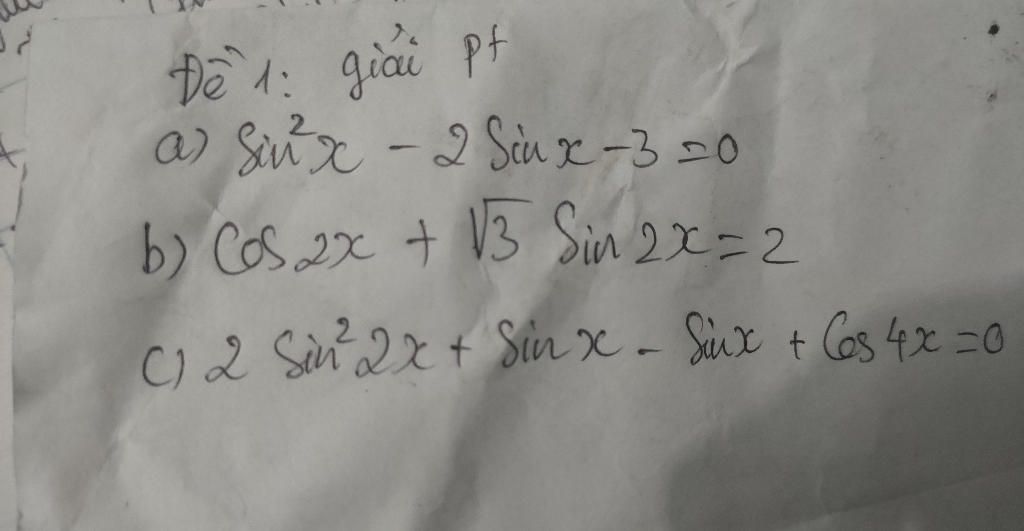 Đề 1: giải pt
a) Sin²x - 2 Sin x - 3 = 0
b) Cos 2x + √3 Sin 2x = 2
c) 2 Sin² 2x + Sin x - Sin x + Cos 4x = 0